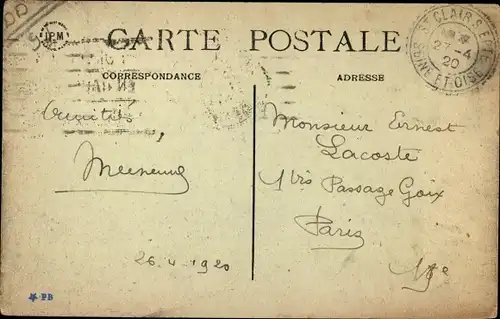 CARTE POSTALE
CORRESPONDANCE
ADRESSE
ST CLAIR S EPTE
27-4
20
SEINE ET OISE
Amitiés,
Monsieur Ernest
Lacoste
1 bis Passage Goix
Paris
19e
26.4.1920
PB